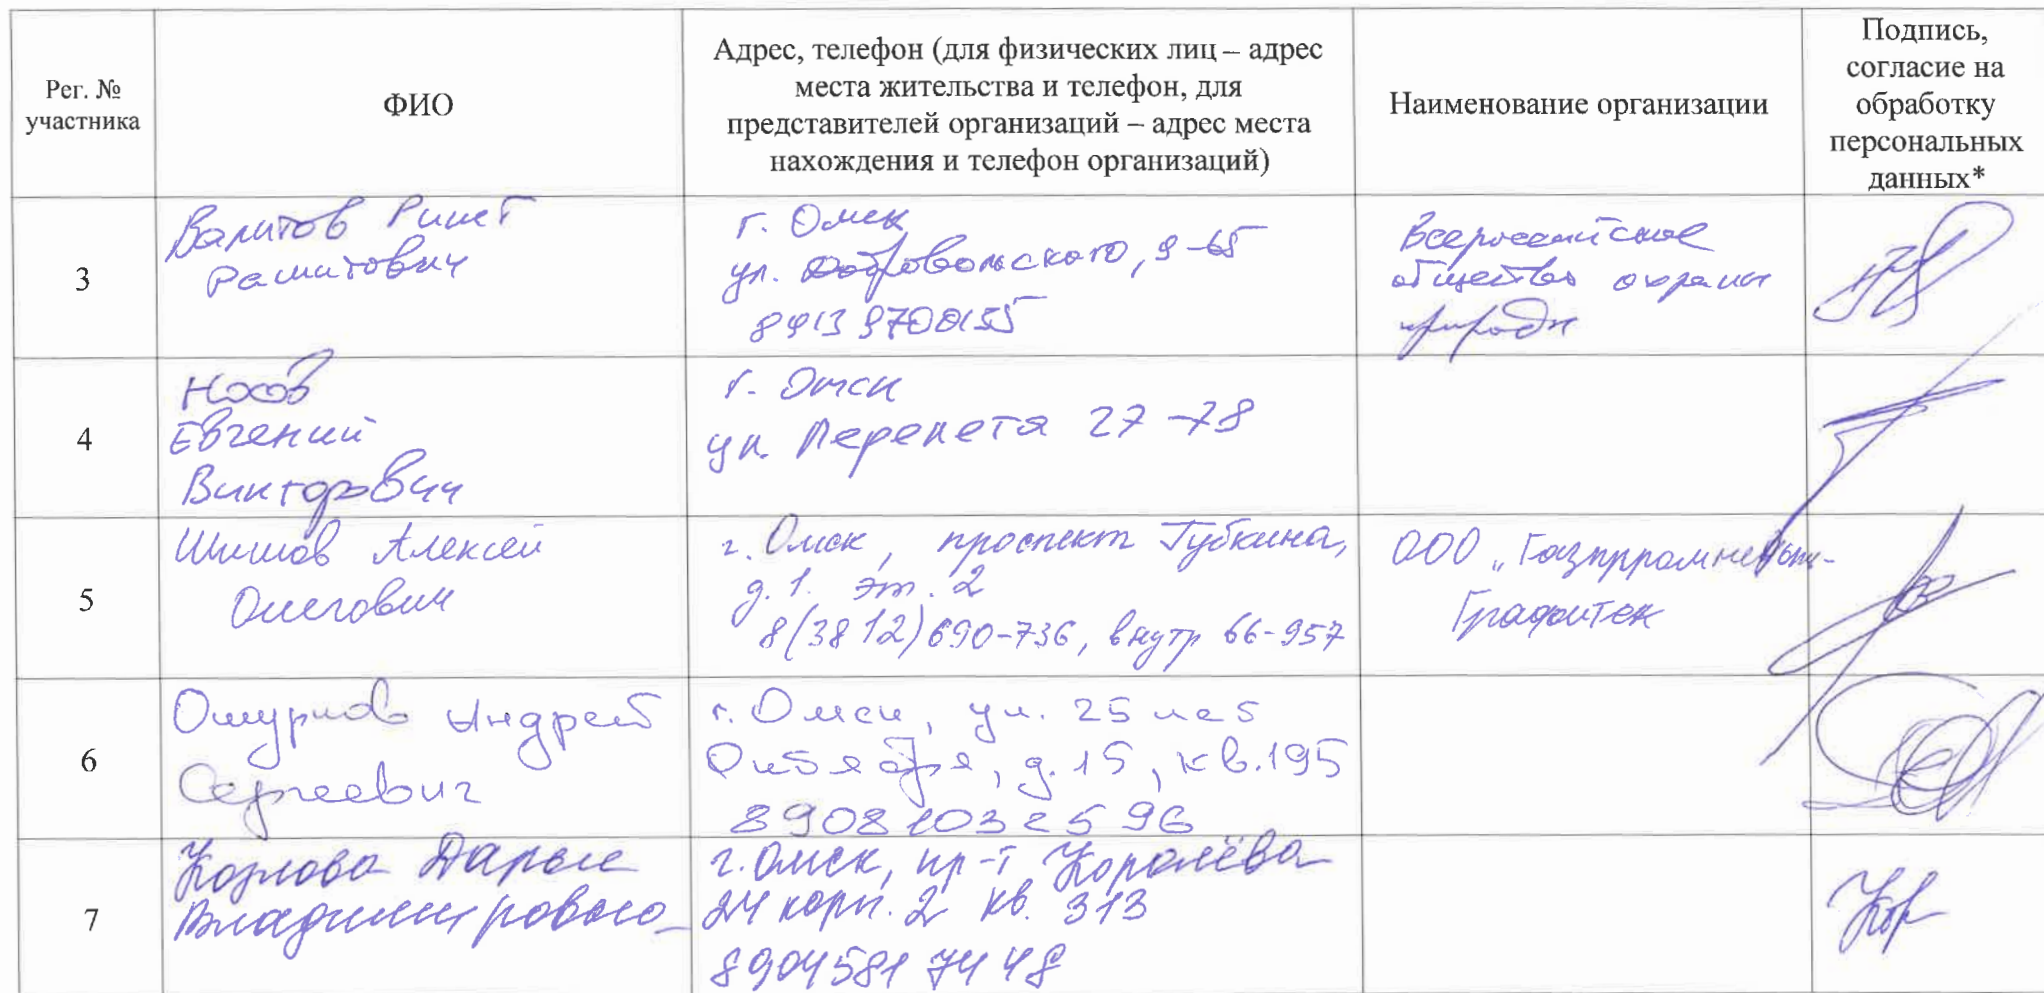 Рег. №
участника
ФИО
Адрес, телефон (для физических лиц – адрес
места жительства и телефон, для
представителей организаций – адрес места
нахождения и телефон организаций)
Наименование организации
Подпись,
согласие на
обработку
персональных
данных*
3
Валитов Ринат
Рашитович
г. Омск
ул. Добровольского, 9-65
89139700155
Всероссийское
общество охраны
природы
4
Носов
Евгений
Викторович
г. Омск
ул. Перелета 27-78
5
Шишов Алексей
Олегович
г. Омск, проспект Губкина,
д. 1. эт. 2
8(3812)690-736, внутр 66-957
ООО „Газпрромнефть-
Графитек
6
Андрей
Сергеевич
г. Омск, ул. 25 лет
Октября, д. 15, кв. 195
89081032596
7
Козлова Дарья
Владимировна
г. Омск, пр-т Королёва
24 корп. 2 кв. 313
8904581 74 48